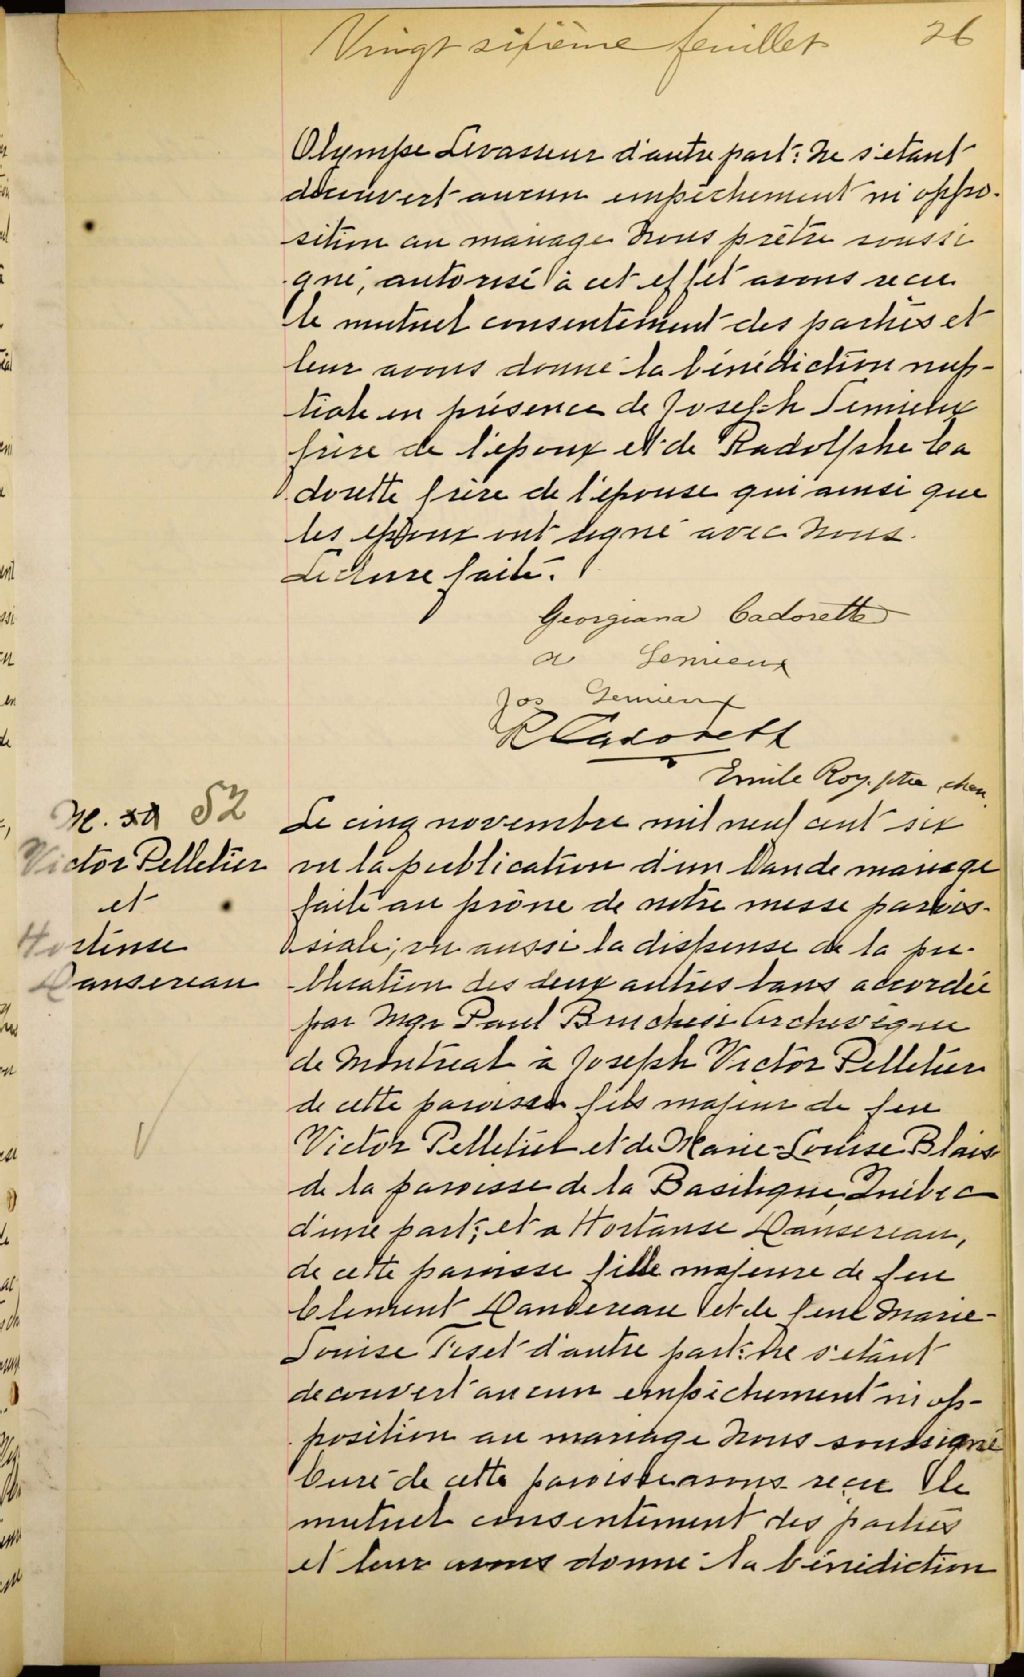 Vingt sixième feuillet 26
Olympe Levasseur d'autre part: Ne s'etant
découvert aucun empêchement ni oppo-
sition au mariage Nous prêtre soussi
gné, autorisé à cet effet avons recu
le mutuel consentement des parties et
leur avons donné la bénédiction nup-
tiale en présence de Joseph Lemieux
frère de l'époux et de Radolphe Ca
dorette frère de l'épouse qui ainsi que
les epoux ont signé avec Nous.
Lecture faite.
Georgiana Cadorette
a Lemieux
Jos Lemieux
R Cadorett
Emile Roy. ptre, chan.
M. 52
Victor Pelletier
et
Hortense
Dansereau
Le cinq novembre mil neuf cent six
vu la publication d'un ban de mariage
faite au prône de notre messe parois-
siale; vu aussi la dispense de la pu-
blication des deux autres bans accordée
par Mgr Paul Bruchesi Archevêque
de Montreal à Joseph Victor Pelletier
de cette paroisse fils majeur de feu
Victor Pelletier et de Marie-Louise Blais
de la paroisse de la Basilique, Québec
d'une part; et a Hortanse Dansereau,
de cette paroisse fille majeure de feu
Clement Dansereau et de feue Marie-
Louise d'autre part: Ne s'etant
decouvert aucun empêchement ni op-
position au mariage Nous soussigné
Curé de cette paroisse avons reçu le
mutuel consentement des parties
et leur avons donné la bénédiction